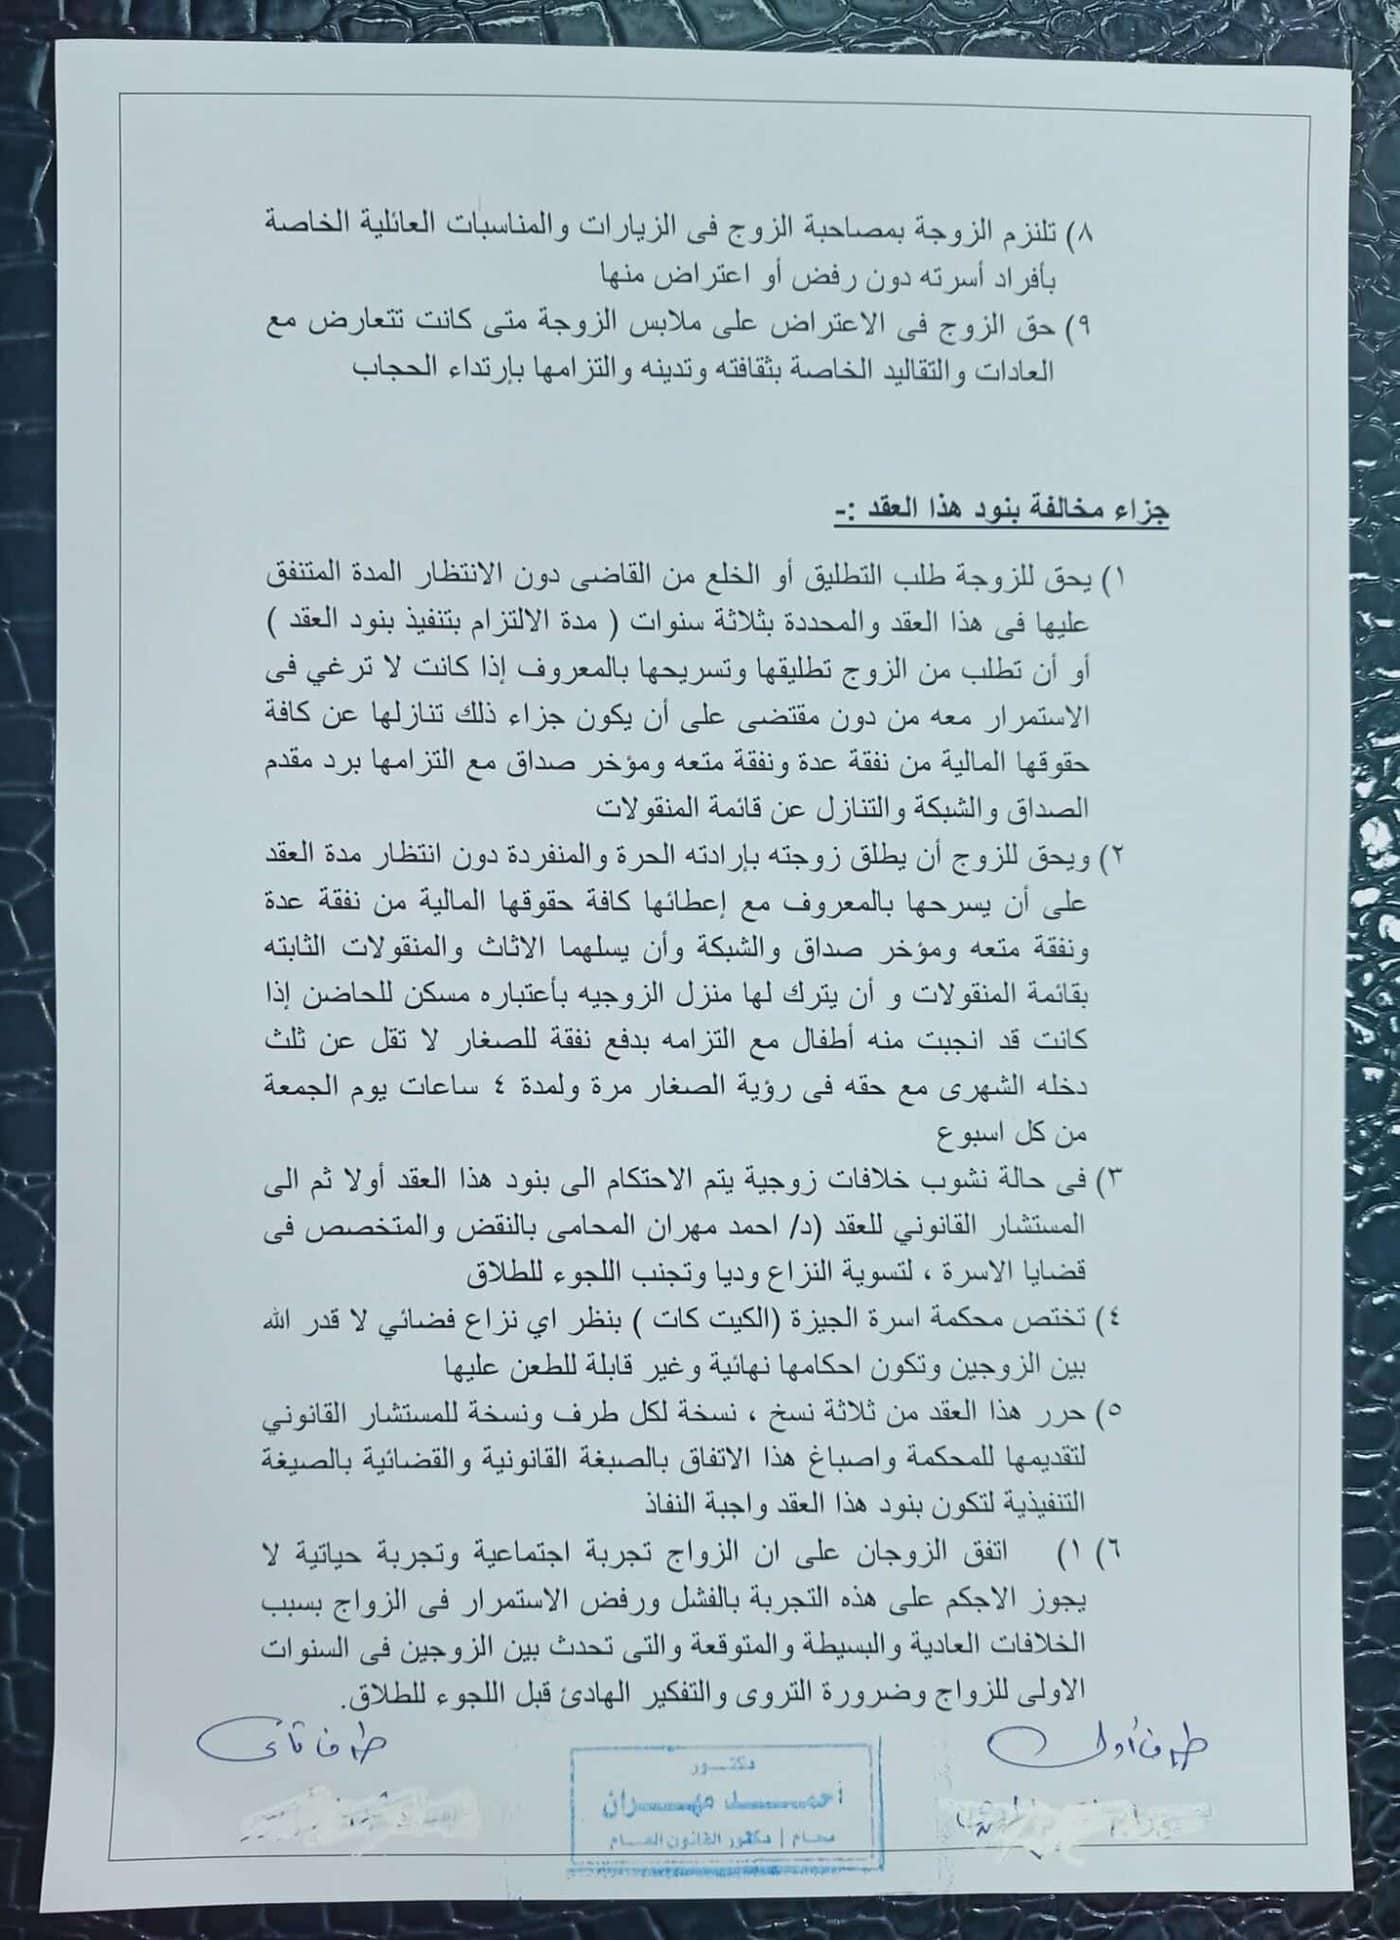 ٨) تلتزم الزوجة بمصاحبة الزوج فى الزيارات والمناسبات العائلية الخاصة
بأفراد أسرته دون رفض أو اعتراض منها
٩) حق الزوج فى الاعتراض على ملابس الزوجة متى كانت تتعارض مع
العادات والتقاليد الخاصة بثقافته وتدينه والتزامها بإرتداء الحجاب
جزاء مخالفة بنود هذا العقد :-
١) يحق للزوجة طلب التطليق أو الخلع من القاضى دون الانتظار المدة المتنفق
عليها فى هذا العقد والمحددة بثلاثة سنوات ( مدة الالتزام بتنفيذ بنود العقد )
أو أن تطلب من الزوج تطليقها وتسريحها بالمعروف إذا كانت لا ترغي فى
الاستمرار معه من دون مقتضى على أن يكون جزاء ذلك تنازلها عن كافة
حقوقها المالية من نفقة عدة ونفقة متعه ومؤخر صداق مع التزامها برد مقدم
الصداق والشبكة والتنازل عن قائمة المنقولات
٢) ويحق للزوج أن يطلق زوجته بإرادته الحرة والمنفردة دون انتظار مدة العقد
على أن يسرحها بالمعروف مع إعطائها كافة حقوقها المالية من نفقة عدة
ونفقة متعه ومؤخر صداق والشبكة وأن يسلهما الاثاث والمنقولات الثابته
بقائمة المنقولات و أن يترك لها منزل الزوجيه بأعتباره مسكن للحاضن إذا
كانت قد انجبت منه أطفال مع التزامه بدفع نفقة للصغار لا تقل عن ثلث
دخله الشهرى مع حقه فى رؤية الصغار مرة ولمدة ٤ ساعات يوم الجمعة
من كل اسبوع
٣) فى حالة نشوب خلافات زوجية يتم الاحتكام الى بنود هذا العقد أولا ثم الى
المستشار القانوني للعقد (د/ احمد مهران المحامى بالنقض والمتخصص فى
قضايا الاسرة ، لتسوية النزاع وديا وتجنب اللجوء للطلاق
٤) تختص محكمة اسرة الجيزة (الكيت كات ) بنظر اي نزاع فضائي لا قدر الله
بين الزوجين وتكون احكامها نهائية وغير قابلة للطعن عليها
٥) حرر هذا العقد من ثلاثة نسخ ، نسخة لكل طرف ونسخة للمستشار القانوني
لتقديمها للمحكمة واصباغ هذا الاتفاق بالصبغة القانونية والقضائية بالصيغة
التنفيذية لتكون بنود هذا العقد واجبة النفاذ
٦) ١) اتفق الزوجان على ان الزواج تجربة اجتماعية وتجربة حياتية لا
يجوز الاجكم على هذه التجربة بالفشل ورفض الاستمرار فى الزواج بسبب
الخلافات العادية والبسيطة والمتوقعة والتى تحدث بين الزوجين فى السنوات
الاولى للزواج وضرورة التروى والتفكير الهادئ قبل اللجوء للطلاق.
طرف أول
طرف ثانى
دكتور
أحمد مهران
محام / دكتور القانون العام